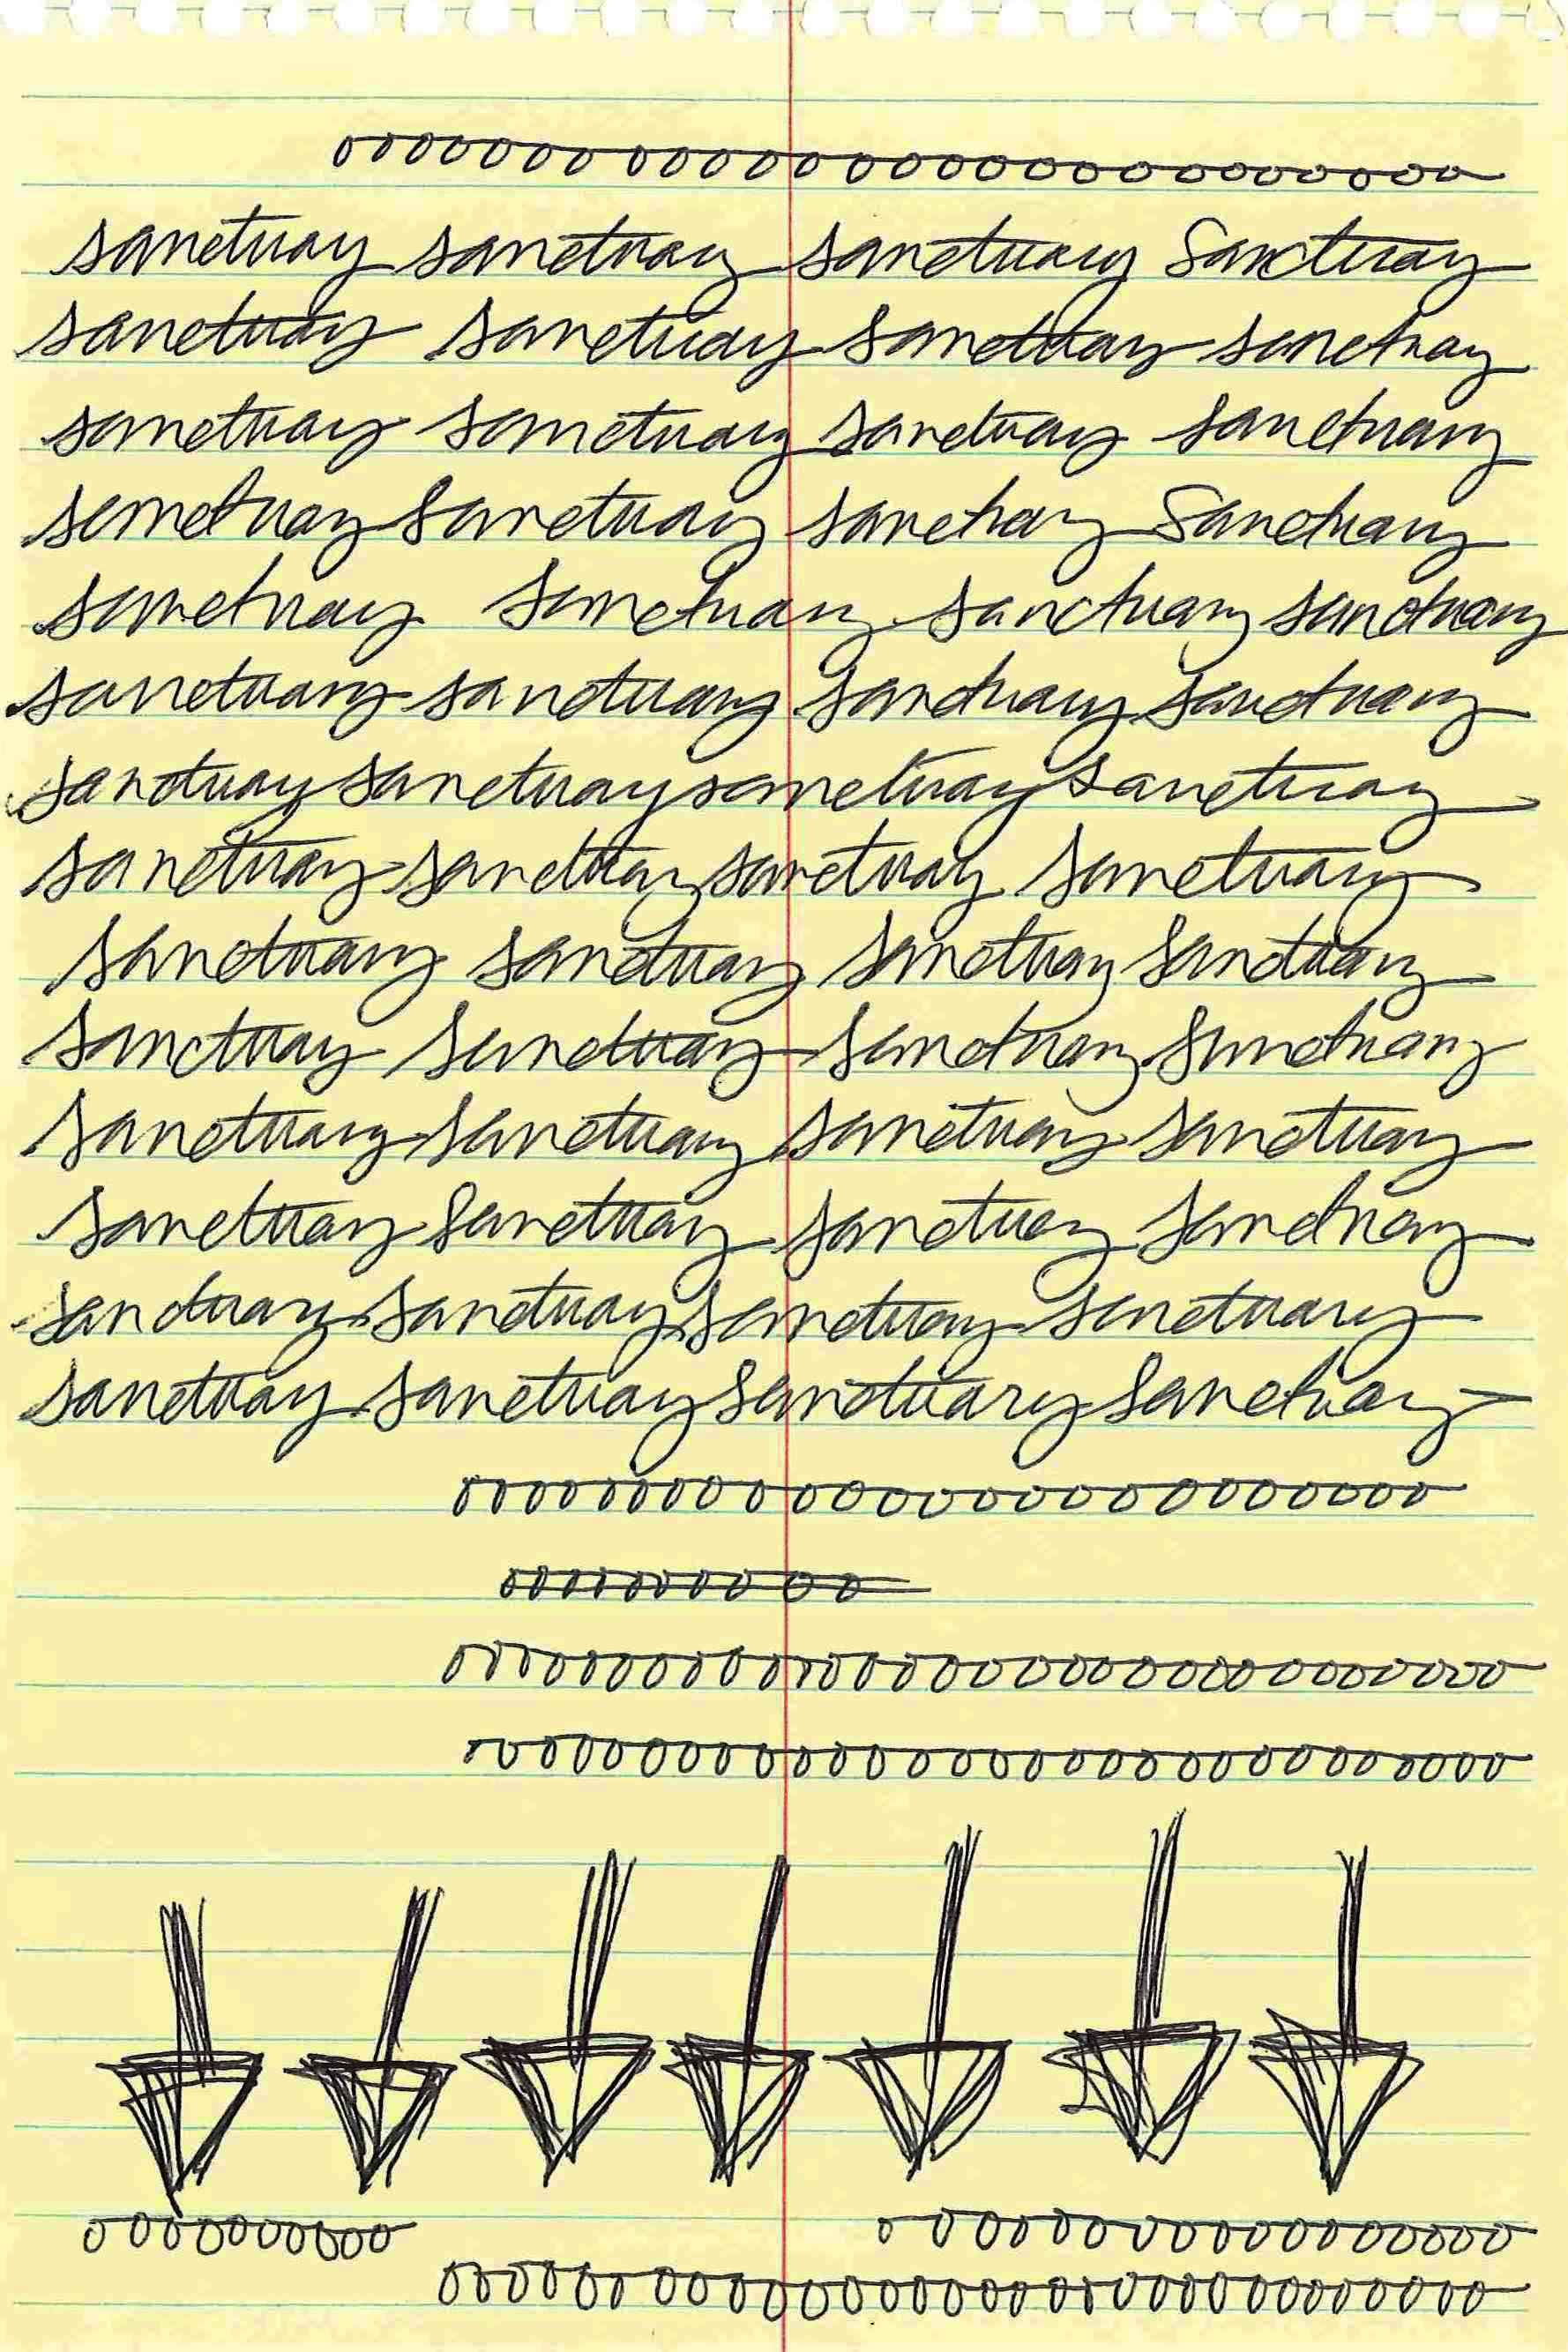 sanctuary sanctuary sanctuary Sanctuary
sanctuary sanctuary sanctuary sanctuary
sanctuary sanctuary sanctuary sanctuary
sanctuary sanctuary sanctuary Sanctuary
sanctuary sanctuary sanctuary sanctuary
sanctuary sanctuary sanctuary sanctuary
sanctuary sanctuary sanctuary sanctuary
sanctuary sanctuary sanctuary sanctuary
sanctuary sanctuary sanctuary sanctuary
sanctuary sanctuary sanctuary sanctuary
sanctuary sanctuary sanctuary sanctuary
sanctuary sanctuary sanctuary sanctuary
sanctuary sanctuary sanctuary sanctuary
sanctuary sanctuary sanctuary sanctuary